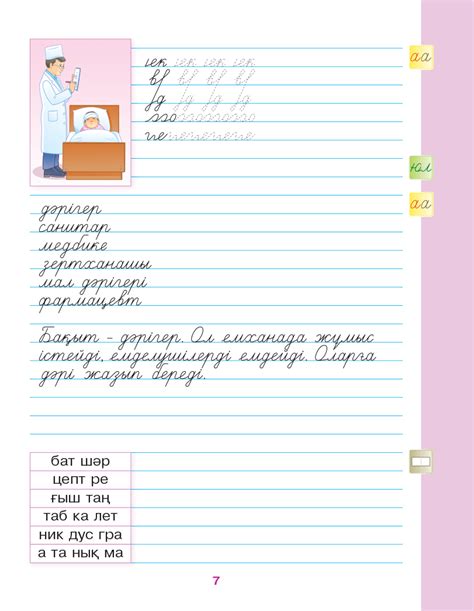 іек іек іек іек
вl вl вl вl
јд јд јд јд
ᴈᴈо
іе
аа
юл
аа
дәрігер
санитар
медбике
зертханашы
мал дәрігері
фармацевт
Бақыт – дәрігер. Ол емханада жұмыс
істейді, емделушілерді емдейді. Оларға
дәрі жазып береді.
бат шәр
цепт ре
ғыш таң
таб ка лет
ник дус гра
а та нық ма
7